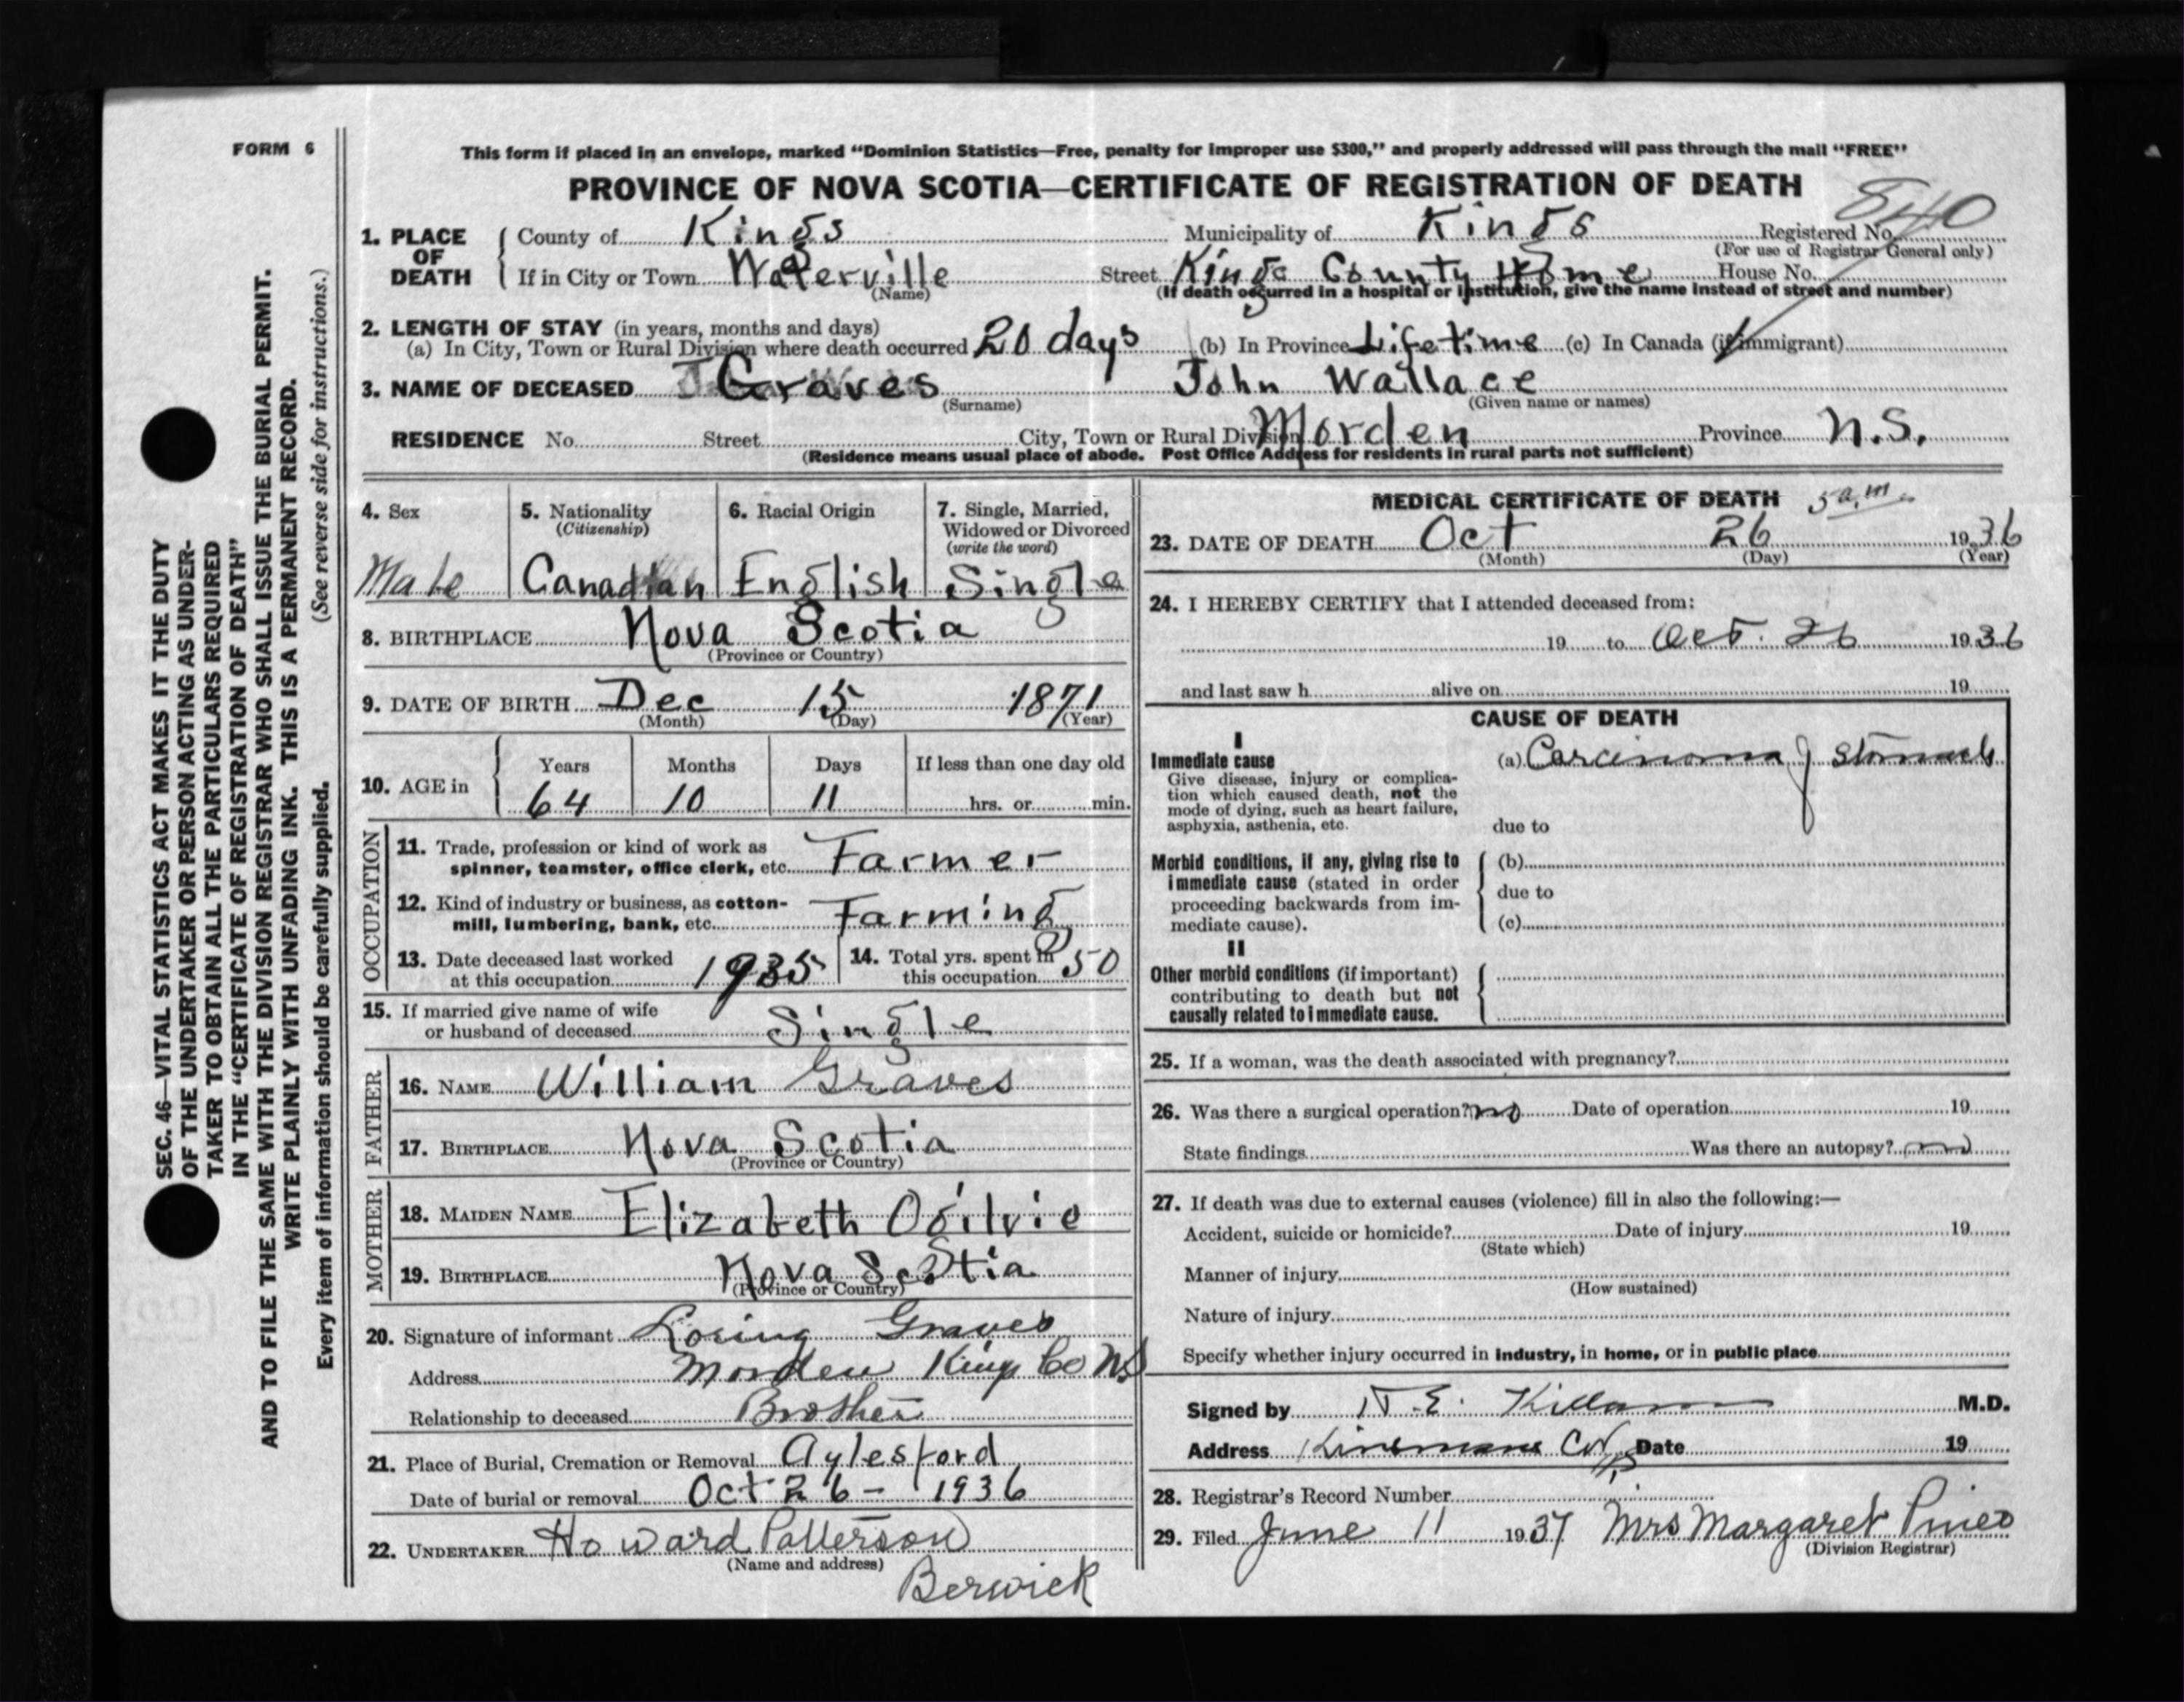 FORM 6
This form if placed in an envelope, marked “Dominion Statistics—Free, penalty for improper use $300,” and properly addressed will pass through the mail “FREE”
PROVINCE OF NOVA SCOTIA—CERTIFICATE OF REGISTRATION OF DEATH
840
1. PLACE OF DEATH
County of Kings Municipality of Kings Registered No.
(For use of Registrar General only)
If in City or Town Waterville Street Kings County Home House No.
(Name) (If death occurred in a hospital or institution, give the name instead of street and number)
2. LENGTH OF STAY (in years, months and days)
(a) In City, Town or Rural Division where death occurred 20 days (b) In Province Lifetime (c) In Canada (if immigrant)
3. NAME OF DECEASED Graves John Wallace
(Surname) (Given name or names)
RESIDENCE No. Street City, Town or Rural Division Morden Province N.S.
(Residence means usual place of abode. Post Office Address for residents in rural parts not sufficient)
4. Sex Male
5. Nationality (Citizenship) Canadian
6. Racial Origin English
7. Single, Married, Widowed or Divorced (write the word) Single
8. BIRTHPLACE Nova Scotia
(Province or Country)
9. DATE OF BIRTH Dec 15 1871
(Month) (Day) (Year)
10. AGE in
Years Months Days If less than one day old
64 10 11 hrs. or min.
OCCUPATION
11. Trade, profession or kind of work as
spinner, teamster, office clerk, etc. Farmer
12. Kind of industry or business, as cotton-
mill, lumbering, bank, etc. Farming
13. Date deceased last worked
at this occupation 1935
14. Total yrs. spent in
this occupation 50
15. If married give name of wife
or husband of deceased Single
FATHER
16. NAME William Graves
17. BIRTHPLACE Nova Scotia
(Province or Country)
MOTHER
18. MAIDEN NAME Elizabeth Ogilvie
19. BIRTHPLACE Nova Scotia
(Province or Country)
20. Signature of informant Loring Graves
Address Morden Kings Co NS
Relationship to deceased Brother
21. Place of Burial, Cremation or Removal Aylesford
Date of burial or removal Oct 26 - 1936
22. UNDERTAKER Howard Patterson
(Name and address)
Berwick
MEDICAL CERTIFICATE OF DEATH 5 a.m.
23. DATE OF DEATH Oct 26 1936
(Month) (Day) (Year)
24. I HEREBY CERTIFY that I attended deceased from:
19 to Oct. 26 1936
and last saw h alive on 19
CAUSE OF DEATH
I
Immediate cause
Give disease, injury or complica-
tion which caused death, not the
mode of dying, such as heart failure,
asphyxia, asthenia, etc.
(a) Carcinoma of stomach
due to
Morbid conditions, if any, giving rise to
immediate cause (stated in order
proceeding backwards from im-
mediate cause).
(b)
due to
(c)
II
Other morbid conditions (if important)
contributing to death but not
causally related to immediate cause.
25. If a woman, was the death associated with pregnancy?
26. Was there a surgical operation? no Date of operation 19
State findings Was there an autopsy? no
27. If death was due to external causes (violence) fill in also the following:—
Accident, suicide or homicide? Date of injury 19
(State which)
Manner of injury
(How sustained)
Nature of injury
Specify whether injury occurred in industry, in home, or in public place
Signed by Killam M.D.
Address Date 19
28. Registrar's Record Number
29. Filed June 11 1937 Mrs Margaret Pineo
(Division Registrar)
SEC. 46—VITAL STATISTICS ACT MAKES IT THE DUTY
OF THE UNDERTAKER OR PERSON ACTING AS UNDER-
TAKER TO OBTAIN ALL THE PARTICULARS REQUIRED
IN THE “CERTIFICATE OF REGISTRATION OF DEATH”
AND TO FILE THE SAME WITH THE DIVISION REGISTRAR WHO SHALL ISSUE THE BURIAL PERMIT.
WRITE PLAINLY WITH UNFADING INK. THIS IS A PERMANENT RECORD.
Every item of information should be carefully supplied. (See reverse side for instructions.)